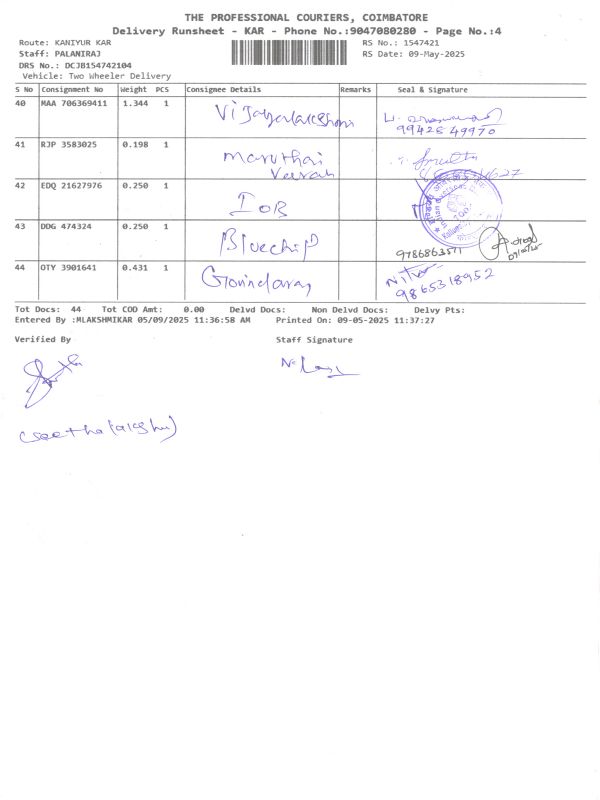 THE PROFESSIONAL COURIERS, COIMBATORE
Delivery Runsheet - KAR - Phone No.:9047080280 - Page No.:4
Route: KANIYUR KAR RS No.: 1547421
Staff: PALANIRAJ RS Date: 09-May-2025
DRS No.: DCJB154742104
Vehicle: Two Wheeler Delivery
S No Consignment No Weight PCS Consignee Details Remarks Seal & Signature
40 MAA 706369411 1.344 1 Vijayalakshmi
9942549970
41 RJP 3583025 0.198 1 Maruthai
Veerah
42 EDQ 21627976 0.250 1 IOB
43 DDG 474324 0.250 1 Bluechip
44 OTY 3901641 0.431 1 Govindaraj
9865318952
Tot Docs: 44 Tot COD Amt: 0.00 Delvd Docs: Non Delvd Docs: Delvy Pts:
Entered By :MLAKSHMIKAR 05/09/2025 11:36:58 AM Printed On: 09-05-2025 11:37:27
Verified By Staff Signature